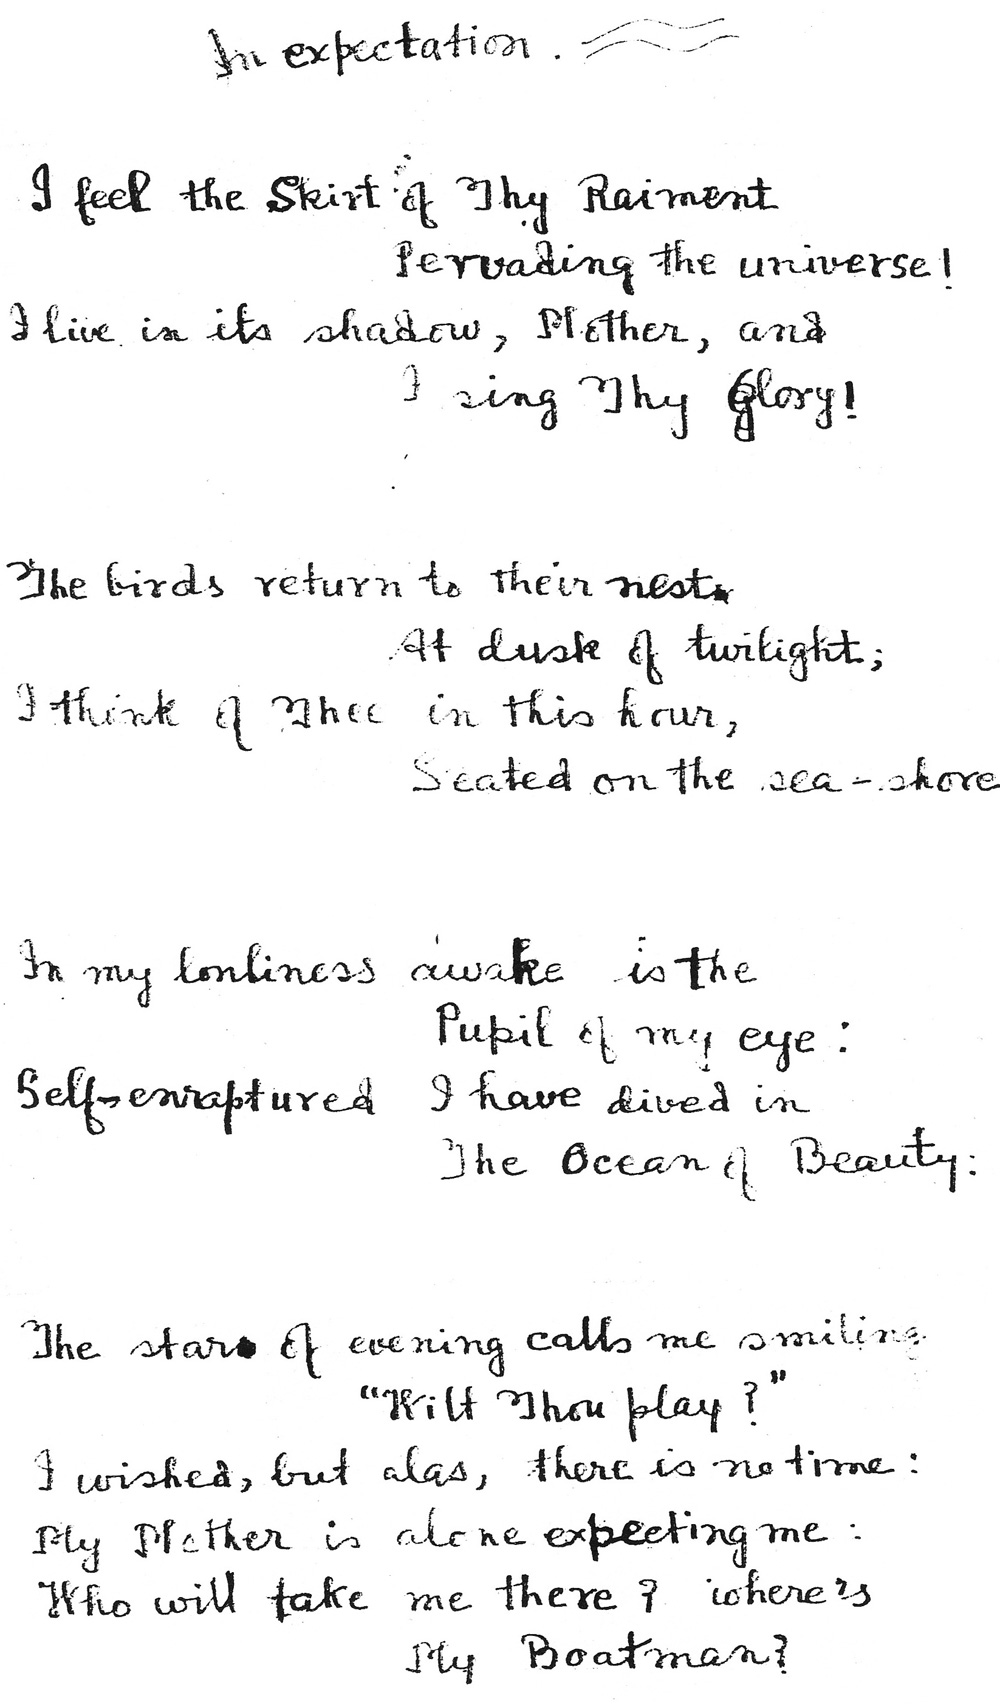 In expectation.
I feel the Skirt of Thy Raiment
Pervading the universe!
I live in its shadow, Mother, and
I sing Thy Glory!
The birds return to their nest
At dusk of twilight;
I think of Thee in this hour,
Seated on the sea-shore
In my lonliness awake is the
Pupil of my eye:
Self-enraptured I have dived in
The Ocean of Beauty:
The star of evening calls me smiling
"Wilt Thou play?"
I wished, but alas, there is no time:
My Mother is alone expecting me:
Who will take me there? where's
My Boatman?